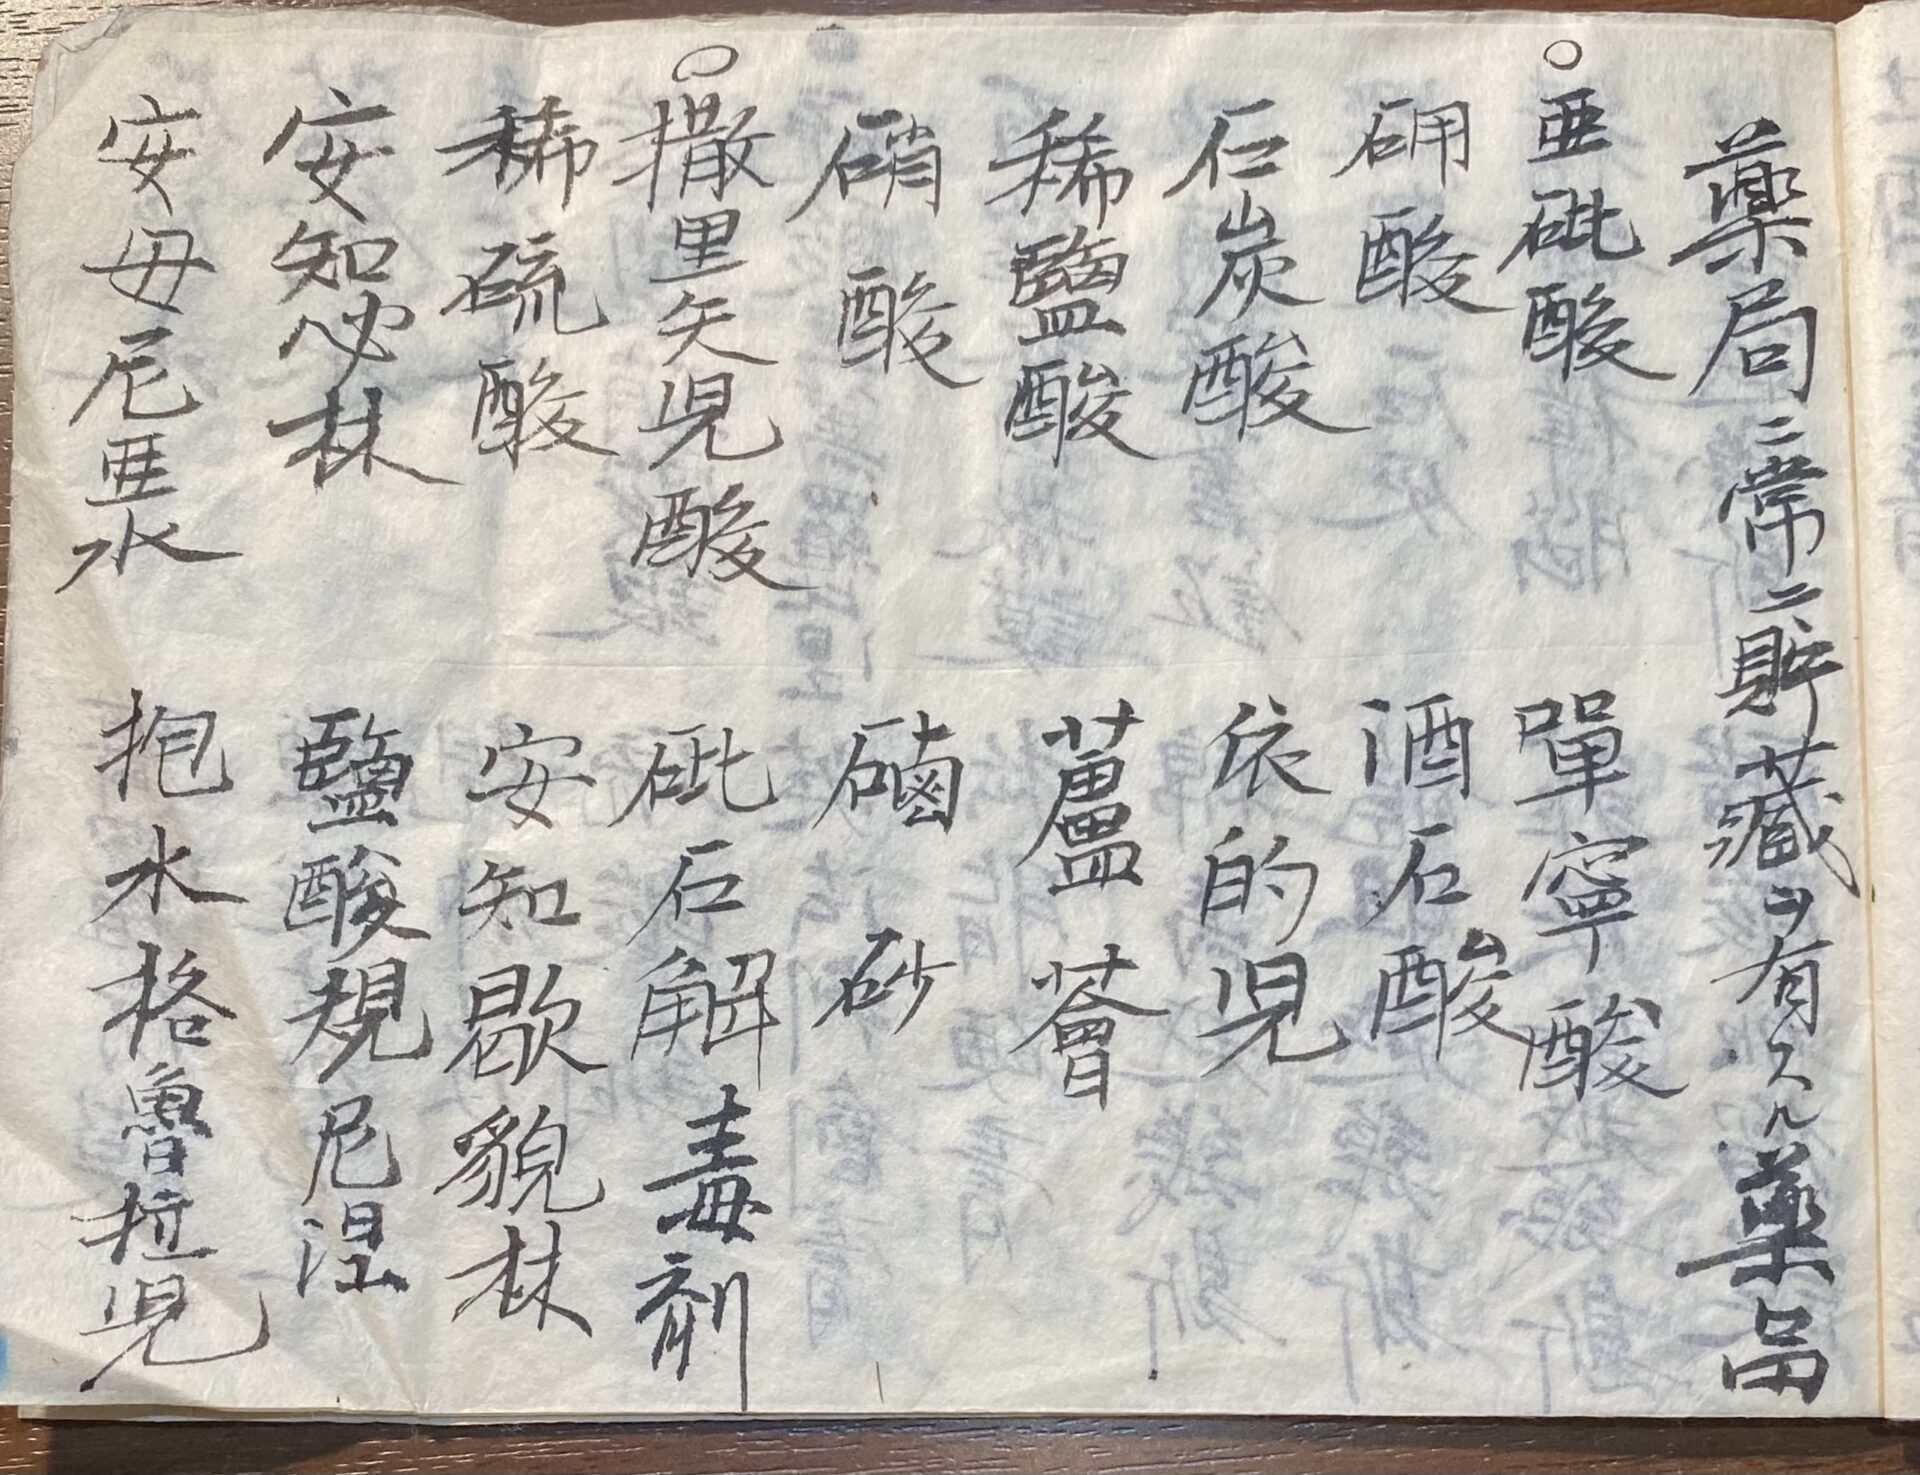 薬局ニ常ニ貯藏ヲ有スル薬品
○亜砒酸
單寧酸
硼酸
酒石酸
石炭酸
依的児
稀鹽酸
蘆薈
硝酸
硇砂
○撒里矢児酸
砒石解毒剤
稀硫酸
安知歇貌林
安知必林
鹽酸規尼涅
安母尼亜水
抱水格魯拉児